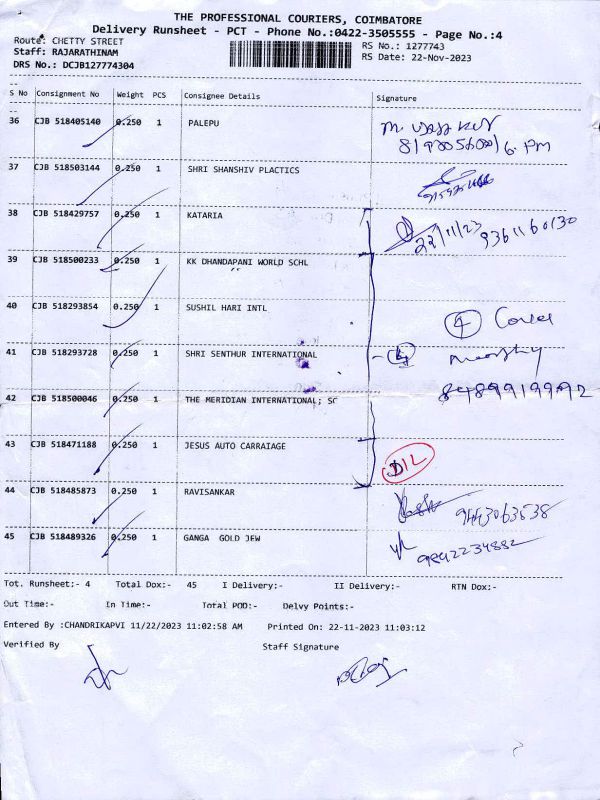 THE PROFESSIONAL COURIERS, COIMBATORE
Delivery Runsheet - PCT - Phone No.:0422-3505555 - Page No.:4
Route: CHETTY STREET
RS No.: 1277743
Staff: RAJARATHINAM
RS Date: 22-Nov-2023
DRS No.: DCJB127774304
S No Consignment No Weight PCS Consignee Details Signature
36 CJB 518405140 0.250 1 PALEPU
6. PM
37 CJB 518503144 0.250 1 SHRI SHANSHIV PLACTICS
38 CJB 518429757 0.250 1 KATARIA
22/11/23 9361160130
39 CJB 518500233 0.250 1 KK DHANDAPANI WORLD SCHL
40 CJB 518293854 0.250 1 SUSHIL HARI INTL
4
41 CJB 518293728 0.250 1 SHRI SENTHUR INTERNATIONAL
42 CJB 518500046 0.250 1 THE MERIDIAN INTERNATIONAL; SC
8489919992
43 CJB 518471188 0.250 1 JESUS AUTO CARRAIAGE
DIL
44 CJB 518485873 0.250 1 RAVISANKAR
9443063538
45 CJB 518489326 0.250 1 GANGA GOLD JEW
9892234882
Tot. Runsheet:- 4 Total Dox:- 45 I Delivery:- II Delivery:- RTN Dox:-
Out Time:- In Time:- Total POD:- Delvy Points:-
Entered By :CHANDRIKAPVI 11/22/2023 11:02:58 AM Printed On: 22-11-2023 11:03:12
Verified By Staff Signature